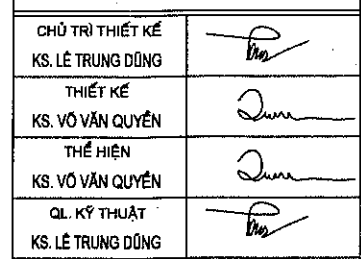 CHỦ TRÌ THIẾT KẾ
KS. LÊ TRUNG DŨNG
THIẾT KẾ
KS. VÕ VĂN QUYỀN
THỂ HIỆN
KS. VÕ VĂN QUYỀN
QL. KỸ THUẬT
KS. LÊ TRUNG DŨNG